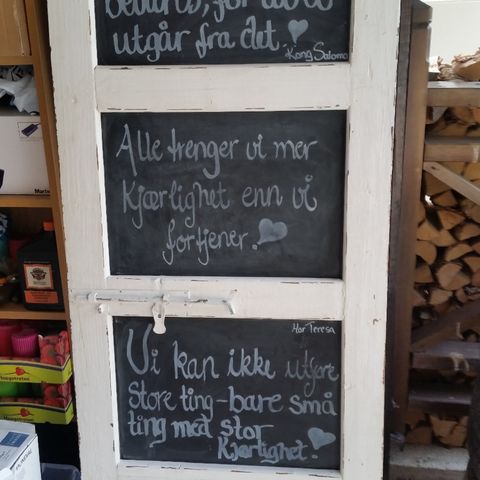 utgår fra det!
Kong Salomo
Alle trenger vi mer
Kjærlighet enn vi
fortjener.
Mor Teresa
Vi kan ikke utføre
Store ting-bare små
ting med stor
Kjærlighet.